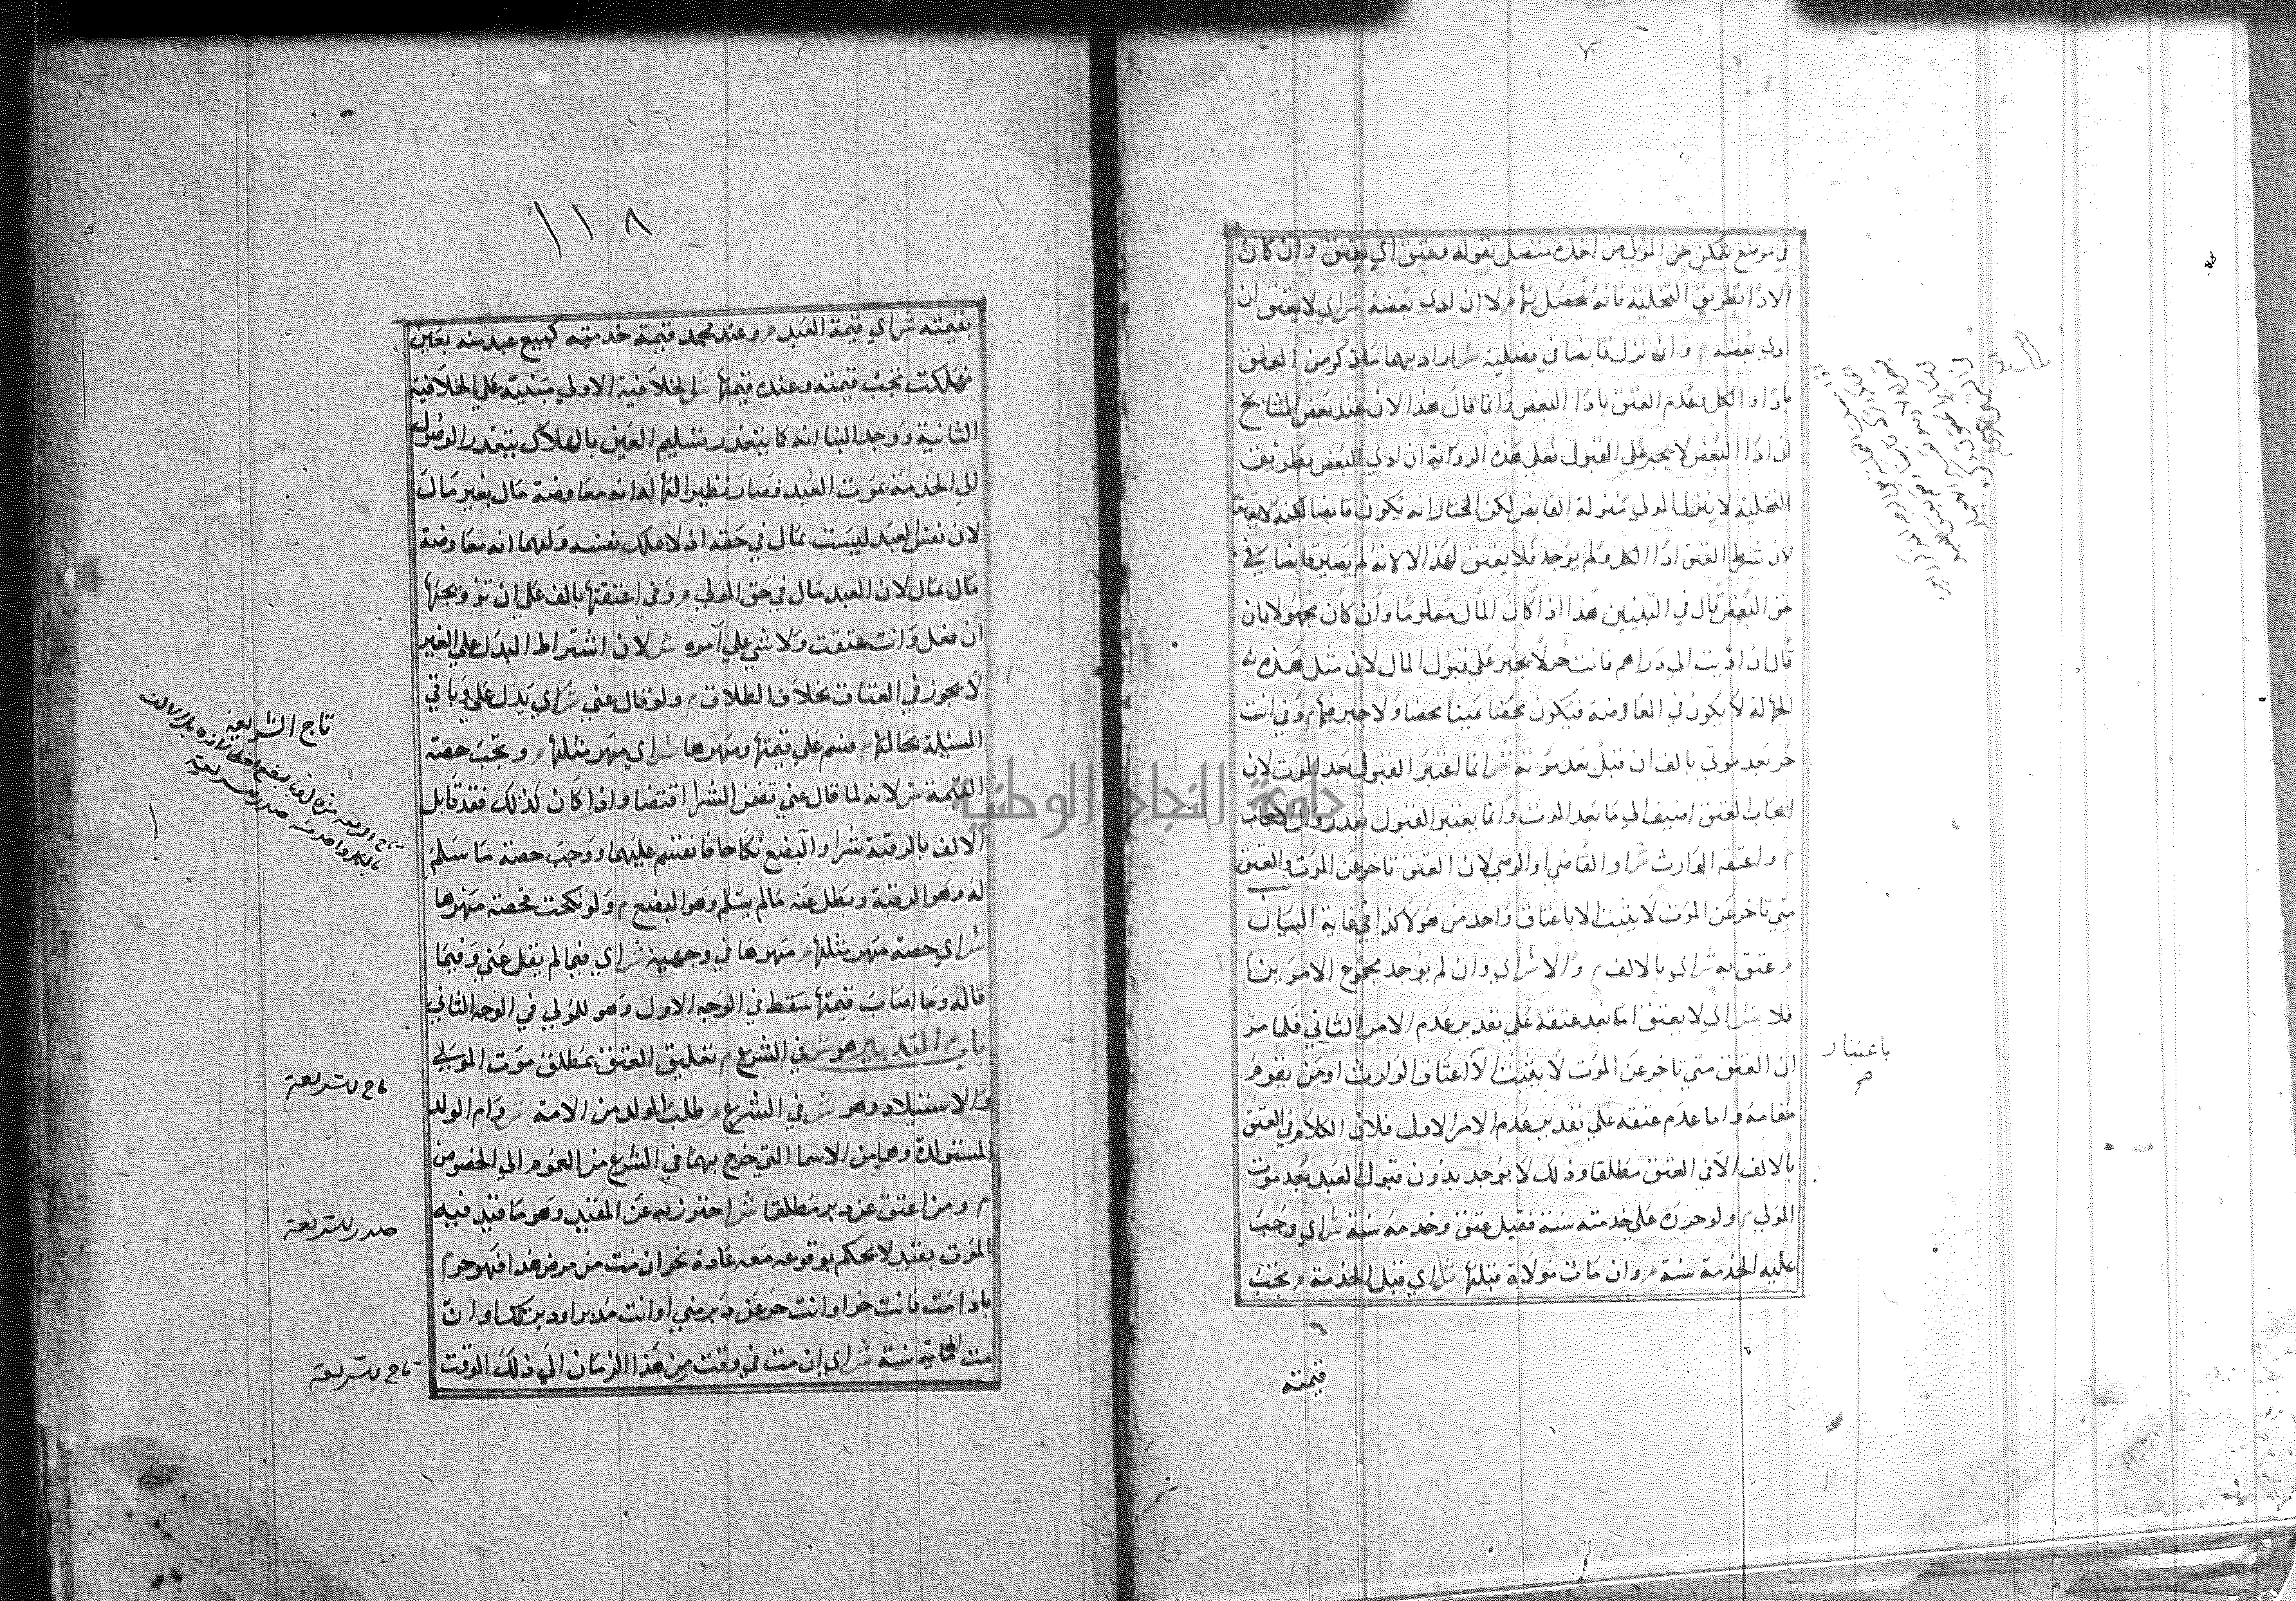 في موضع يمكن من المولى من اخذه متصل بقوله وعتق اي يعتق وان كان
الاداء بطريق التخلية فانه يحصل بها م لا ان ادى بعضه ش اي لا يعتق ان
ادى بعضه م وان نزل قابضا في فصليه ش اراد بهما ما ذكر من العتق
باداء الكل وعدم العتق باداء البعض وانما قال هذا لان عند بعض المشايخ
ان اداء البعض لا يجبر على القبول فعلى هذه الرواية ان ادى البعض بطريق
التخلية لا ينزل المولى منزلة القابض لكن المختار انه يكون قابضا لكنه لا يعتق
لان شرط العتق اداء الكل ولم يوجد فلا يعتق لهذا لا لانه لم يصير قابضا في
حق البعض قال في التبيين هذا اذا كان المال معلوما وان كان مجهولا بان
قال ان اديت الي دراهم فانت حر لا يجبر على قبول المال لان مثل هذه
الجهالة لا يكون في المعاوضة فيكون يمينا محضا ولا جبر فيها م وفي انت
حر بعد موتي بالف ان قبل بعد موته ش انما يعتبر القبول بعد الموت لان
ايجاب العتق اضيف الى ما بعد الموت وانما يعتبر القبول بعد زوال الايجاب
م واعتقه الوارث ش او القاضي او الوصي لان العتق تاخر عن الموت والعتق
متى تاخر عن الموت لا يثبت الا باعتاق واحد من هولا كذا في غاية البيان
م عتق به ش اي بالالف م والا ش اي وان لم يوجد مجموع الامرين
فلا ش اي لا يعتق اما بعد عتقه على تقدير عدم الامر الثاني فلما مر
ان العتق متى تاخر عن الموت لا يثبت الا اعتاق الوارث او من يقوم
مقامه واما عدم عتقه على تقدير عدم الامر الاول فلان الكلام في العتق
بالالف لا في العتق مطلقا وذلك لا يوجد بدون قبول العبد بعد موت
المولى م ولو حرره على خدمته سنة فقبل عتق وخدمه سنة ش اي وجب
عليه الخدمة سنة م وان مات مولاه قبلها ش اي قبل الخدمة م يجب
قيمته
باعتبار
صح
١١٨
بقيمته ش اي قيمة العبد م وعند محمد قيمة خدمته كبيع عبد منه بعين
فهلكت تجب قيمته وعنده قيمتها ش الخلافية الاولى مبنية على الخلافية
الثانية ووجد البنا انه كما يتعذر تسليم العين بالهلاك يتعذر الوصول
الى الخدمة بموت العبد فصار نظيرا لها له انه معاوضة مال بغير مال
لان نفس العبد ليست بمال في حقه اذ لا يملك نفسه ولهما انه معاوضة
مال بمال لان العبد مال في حق المولى م وفي اعتقتها بالف على ان تزوجنيها
ان فعل وانت عتقت ولا شي على آمره ش لان اشتراط البدل على الغير
لا يجوز في العتاق بخلاف الطلاق م ولو قال عني ش اي بدل علي وباقي
المسئلة بحالها م قسم على قيمتها ومهرها ش اي مهر مثلها م ويجب حصة
القيمة ش لانه لما قال عني تضمن الشرا اقتضا واذا كان كذلك فقد قابل
الالف بالرقبة شرا والبضع نكاحا فانقسم عليهما ووجب حصة ما سلم
له وهو الرقبة وبطل عنه ما لم يسلم وهو البضع م ولو نكحت فحصة مهرها
ش اي حصة مهر مثلها م مهرها في وجهيه ش اي فيما لم يقل عني وفيما
قاله وما اصاب قيمتها سقط في الوجه الاول وهو للمولى في الوجه الثاني
باب التدبير هو ش في الشرع م تعليق العتق بمطلق موت المولى
والاستيلاد وهو ش في الشرع م طلب الولد من الامة ش وام الولد
المستولدة وهما من الاسما التي خرج بهما في الشرع من العموم الى الخصوص
م ومن اعتق عن دبر مطلقا ش احترز به عن المقيد وهو ما قيد فيه
الموت بقيد لا يحكم بوقوعه معه عادة نحو ان مت من مرضي هذا فهو حر م
باذا مت فانت حر او انت حر عن دبر مني او انت مدبر او دبرتك او ان
مت الى مائة سنة ش اي ان مت في وقت من هذا الزمان الى ذلك الوقت
تاج الشريعة
تاج الشريعة
صدر الشريعة
تاج الشريعة